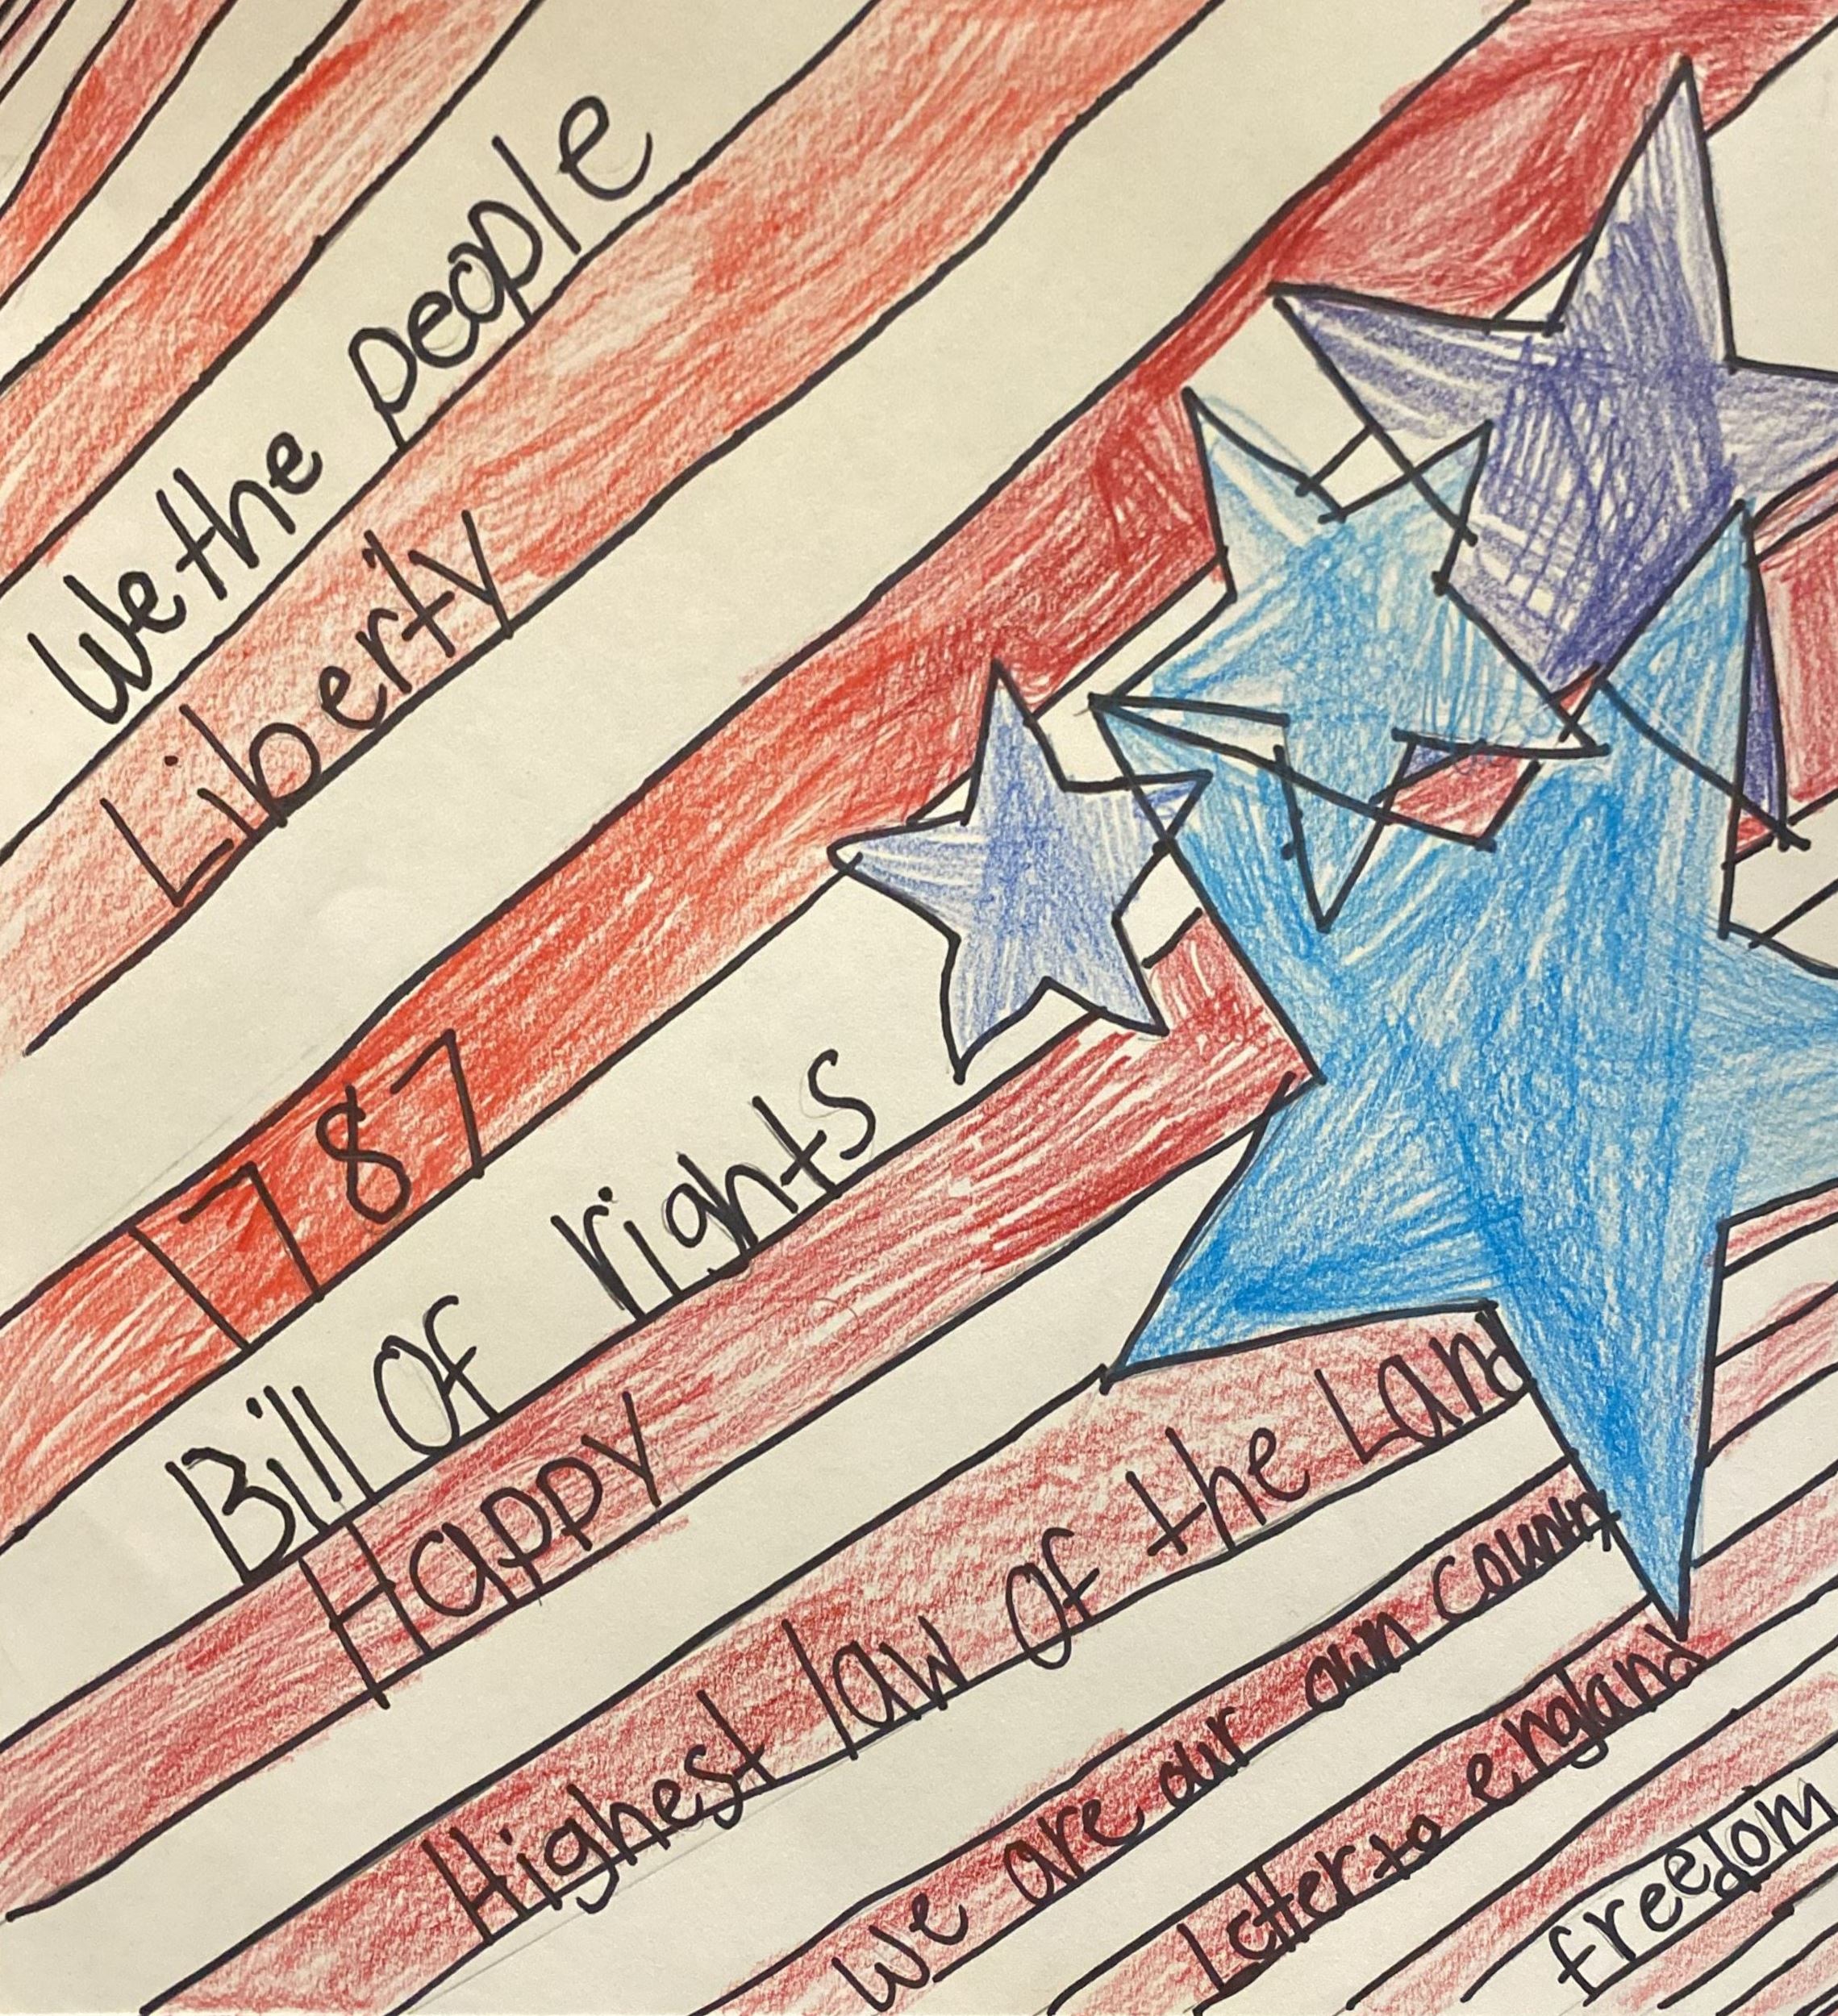 We the people
Liberty
1787
Bill Of rights
Happy
Highest law of the Land
We are our own
Letter to england
freedom